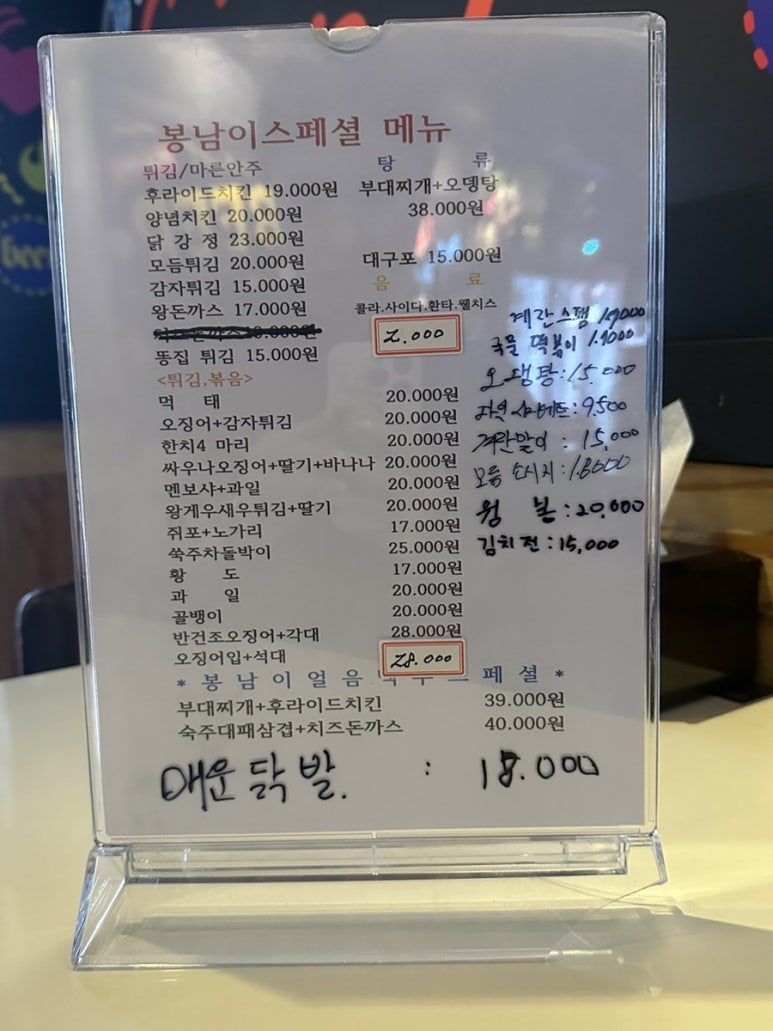 봉남이스페셜 메뉴
튀김/마른안주
후라이드치킨 19.000원
양념치킨 20.000원
닭 강 정 23.000원
모듬튀김 20.000원
감자튀김 15.000원
왕돈까스 17.000원
똥집 튀김 15.000원
탕 류
부대찌개+오뎅탕
38.000원
대구포 15.000원
음 료
콜라.사이다.환타.웰치스
2.000
<튀김.볶음>
먹 태 20.000원
오징어+감자튀김 20.000원
한치4 마리 20.000원
싸우나오징어+딸기+바나나 20.000원
멘보샤+과일 20.000원
왕게우새우튀김+딸기 20.000원
쥐포+노가리 17.000원
쑥주차돌박이 25.000원
황 도 17.000원
과 일 20.000원
골뱅이 20.000원
반건조오징어+각대 28.000원
오징어입+석대 28.000
* 봉 남 이 얼 음 스 페 셜 *
부대찌개+후라이드치킨 39.000원
숙주대패삼겹+치즈돈까스 40.000원
매운 닭 발. : 18.000
계란스팸
국물 떡볶이
오뎅탕:15.000
9.500
계란말이 : 15,000
모듬 소시지:
: 20,000
김치전:15,000
beer